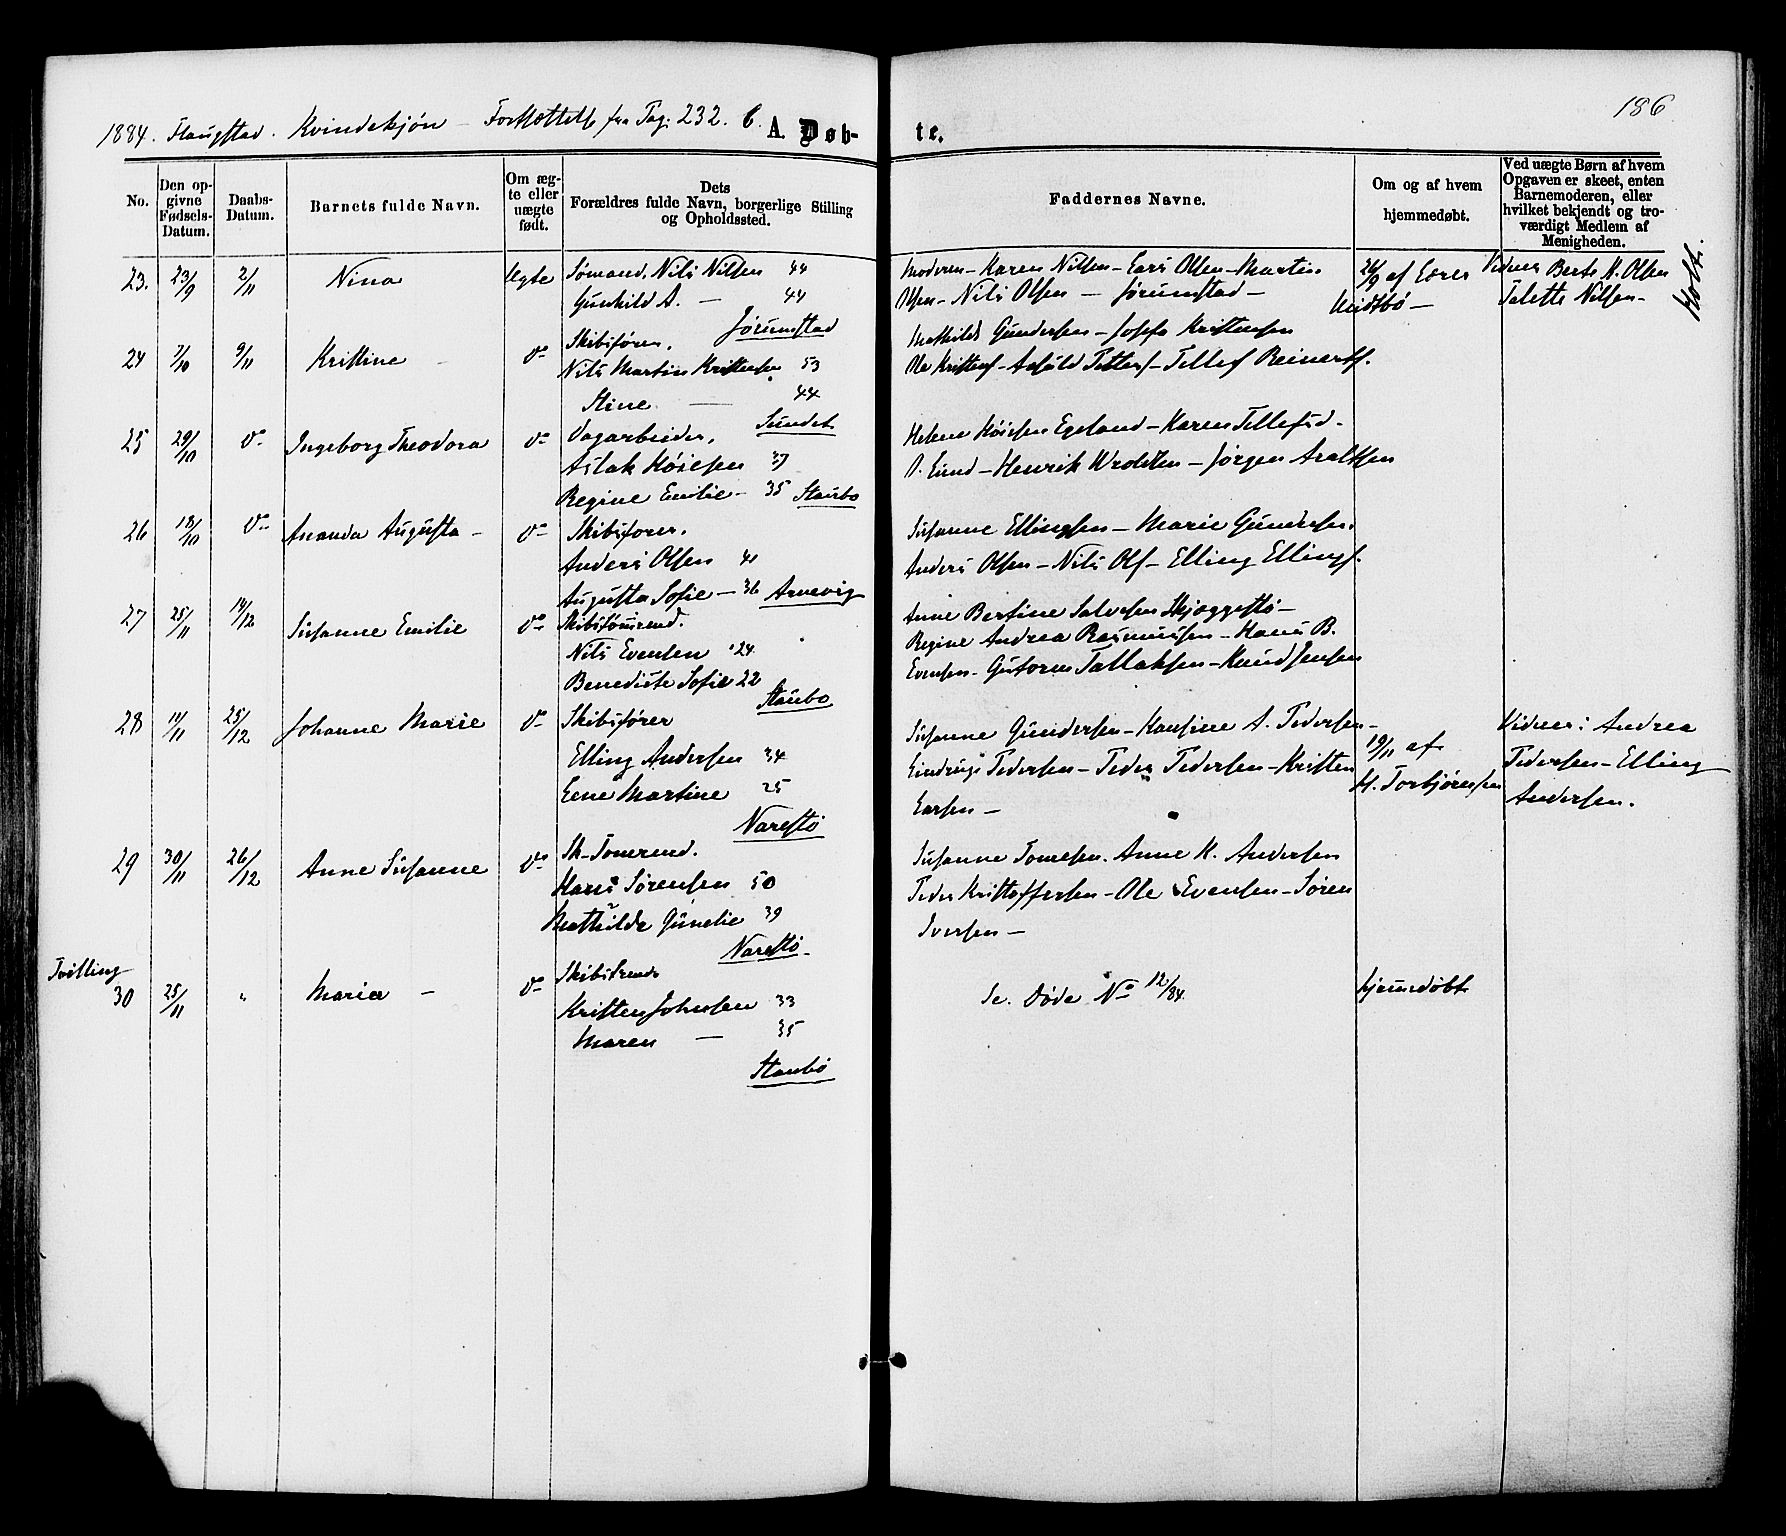 186
1884. Flangstad. Kvindekjön – Fortsættelse fra Pag: 232. b. A. Døb-te.
No.
Den opgivne Fødsels-Datum.
Daabs-Datum.
Barnets fulde Navn.
Om ægte eller uægte født.
Dets Forældres fulde Navn, borgerlige Stilling og Opholdssted.
Faddernes Navne.
Om og af hvem hjemmedøbt.
Ved uægte Børn af hvem Opgaven er skeet, enten Barnemoderen, eller hvilket bekjendt og troværdigt Medlem af Menigheden.
Holt.
23. 23/9 2/11 Nina Ægte Sømand. Nils Nilsen 44
Gunhild A. — 44
Jörumstad
Moderen – Karen Nilsen – Lars Olsen – Martin
Olsen – Nils Olsen – Jörumstad –
26/9 af
Vidner Berte N. Olsen
Talette Nilsen –
24 7/10 9/11 Kristine – do Skibsförer.
Nils Martin Kristensen 53
Stine — 44
Sundet
Mathilde Gundersen – Josefa Kristensen
Ole Kristens – Tellef Reinerts.
25 29/10 do Ingeborg Theodora do Dagarbeider.
Aslak Höiesen 37
Regine Emilie – 35 Staubo
Helene Höiesen Egeland – Karen Tellefsd.
Henrik – Jörgen
26 18/10 do Ananda Augusta – do Skibsförer.
Anders Olsen 41
Augusta Sofie – 36 Arnevig
Susanne Ellingsen – Marie Gundersen.
Anders Olsen – Nils Ols – Elling Ellings.
27 25/11 14/12 Susanne Emilie do Skibstömrmd.
Nils Evensen 24
Benedicte Sofie 22
Staubo
Anne Bertine Salvesen Skjæggestö –
Regine Andrea Rasmussen – Hans B.
Evensen – Gutorm Tallaksen – Knud Jensen
28 11/11 25/12 Johanne Marie do Skibsförer
Elling Andersen 34
Lene Martine 25
Narestö
Susanne Gundersen – Hansine A. Pedersen –
Eindrup Pedersen – Peder Pedersen – Kristen
Larsen –
19/11 af
H. Torbjörensen
Vidner: Andrea
Pedersen – Elling
Andersen.
29 30/11 26/12 Anne Susanne do Sk-Tömrmd.
Hans Sörensen 50
Mathilde Gunelie 39
Narestö
Susanne Tomesen. Anne K. Andersen
Peder Kristoffersen – Ole Evensen – Sören
Iversen –
Tvilling
30 25/11 „ Maria – do
Kristen Johnsen 33
Maren — 35
Staubö
Se. Döde No 12/84.
hjemmedöbt